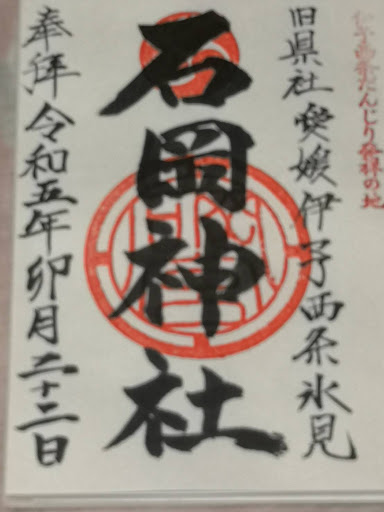 だんじり発祥の地
旧県社愛媛伊予西条氷見
石岡神社
奉拝令和五年卯月二十二日